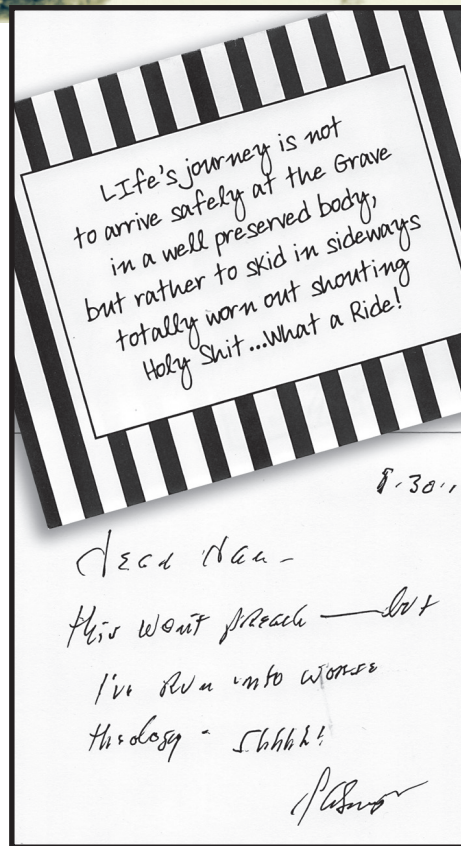 LIfe's journey is not
to arrive safely at the Grave
in a well preserved body,
but rather to skid in sideways
totally worn out shouting
Holy Shit...What a Ride!
Dear Nan -
this won't preach — but
I've Run into worse
theology - Shhhh!